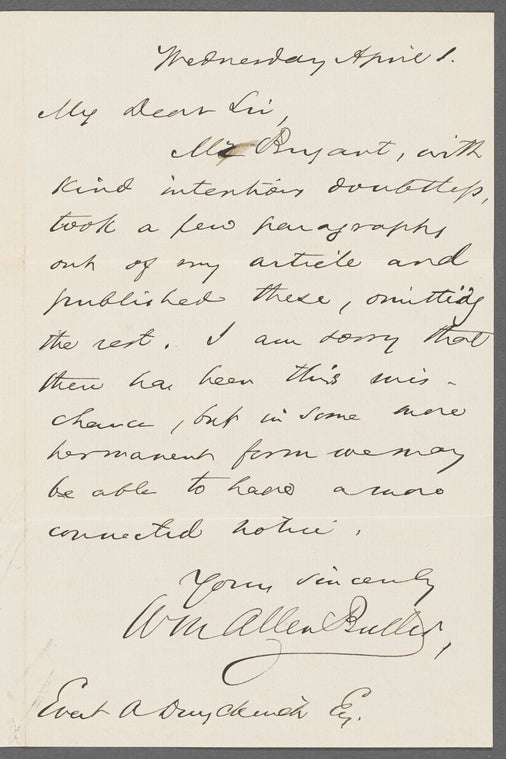 Wednesday April 1.
My Dear Sir,
Mr Bryant, with
kind intentions doubtless,
took a few paragraphs
out of my article and
published these, omitting
the rest. I am sorry that
there has been this mis-
chance, but in some more
permanent form we may
be able to have a more
connected notice.
Yours sincerely
Wm Allen Butler,
Evert A Duyckinck Esq.